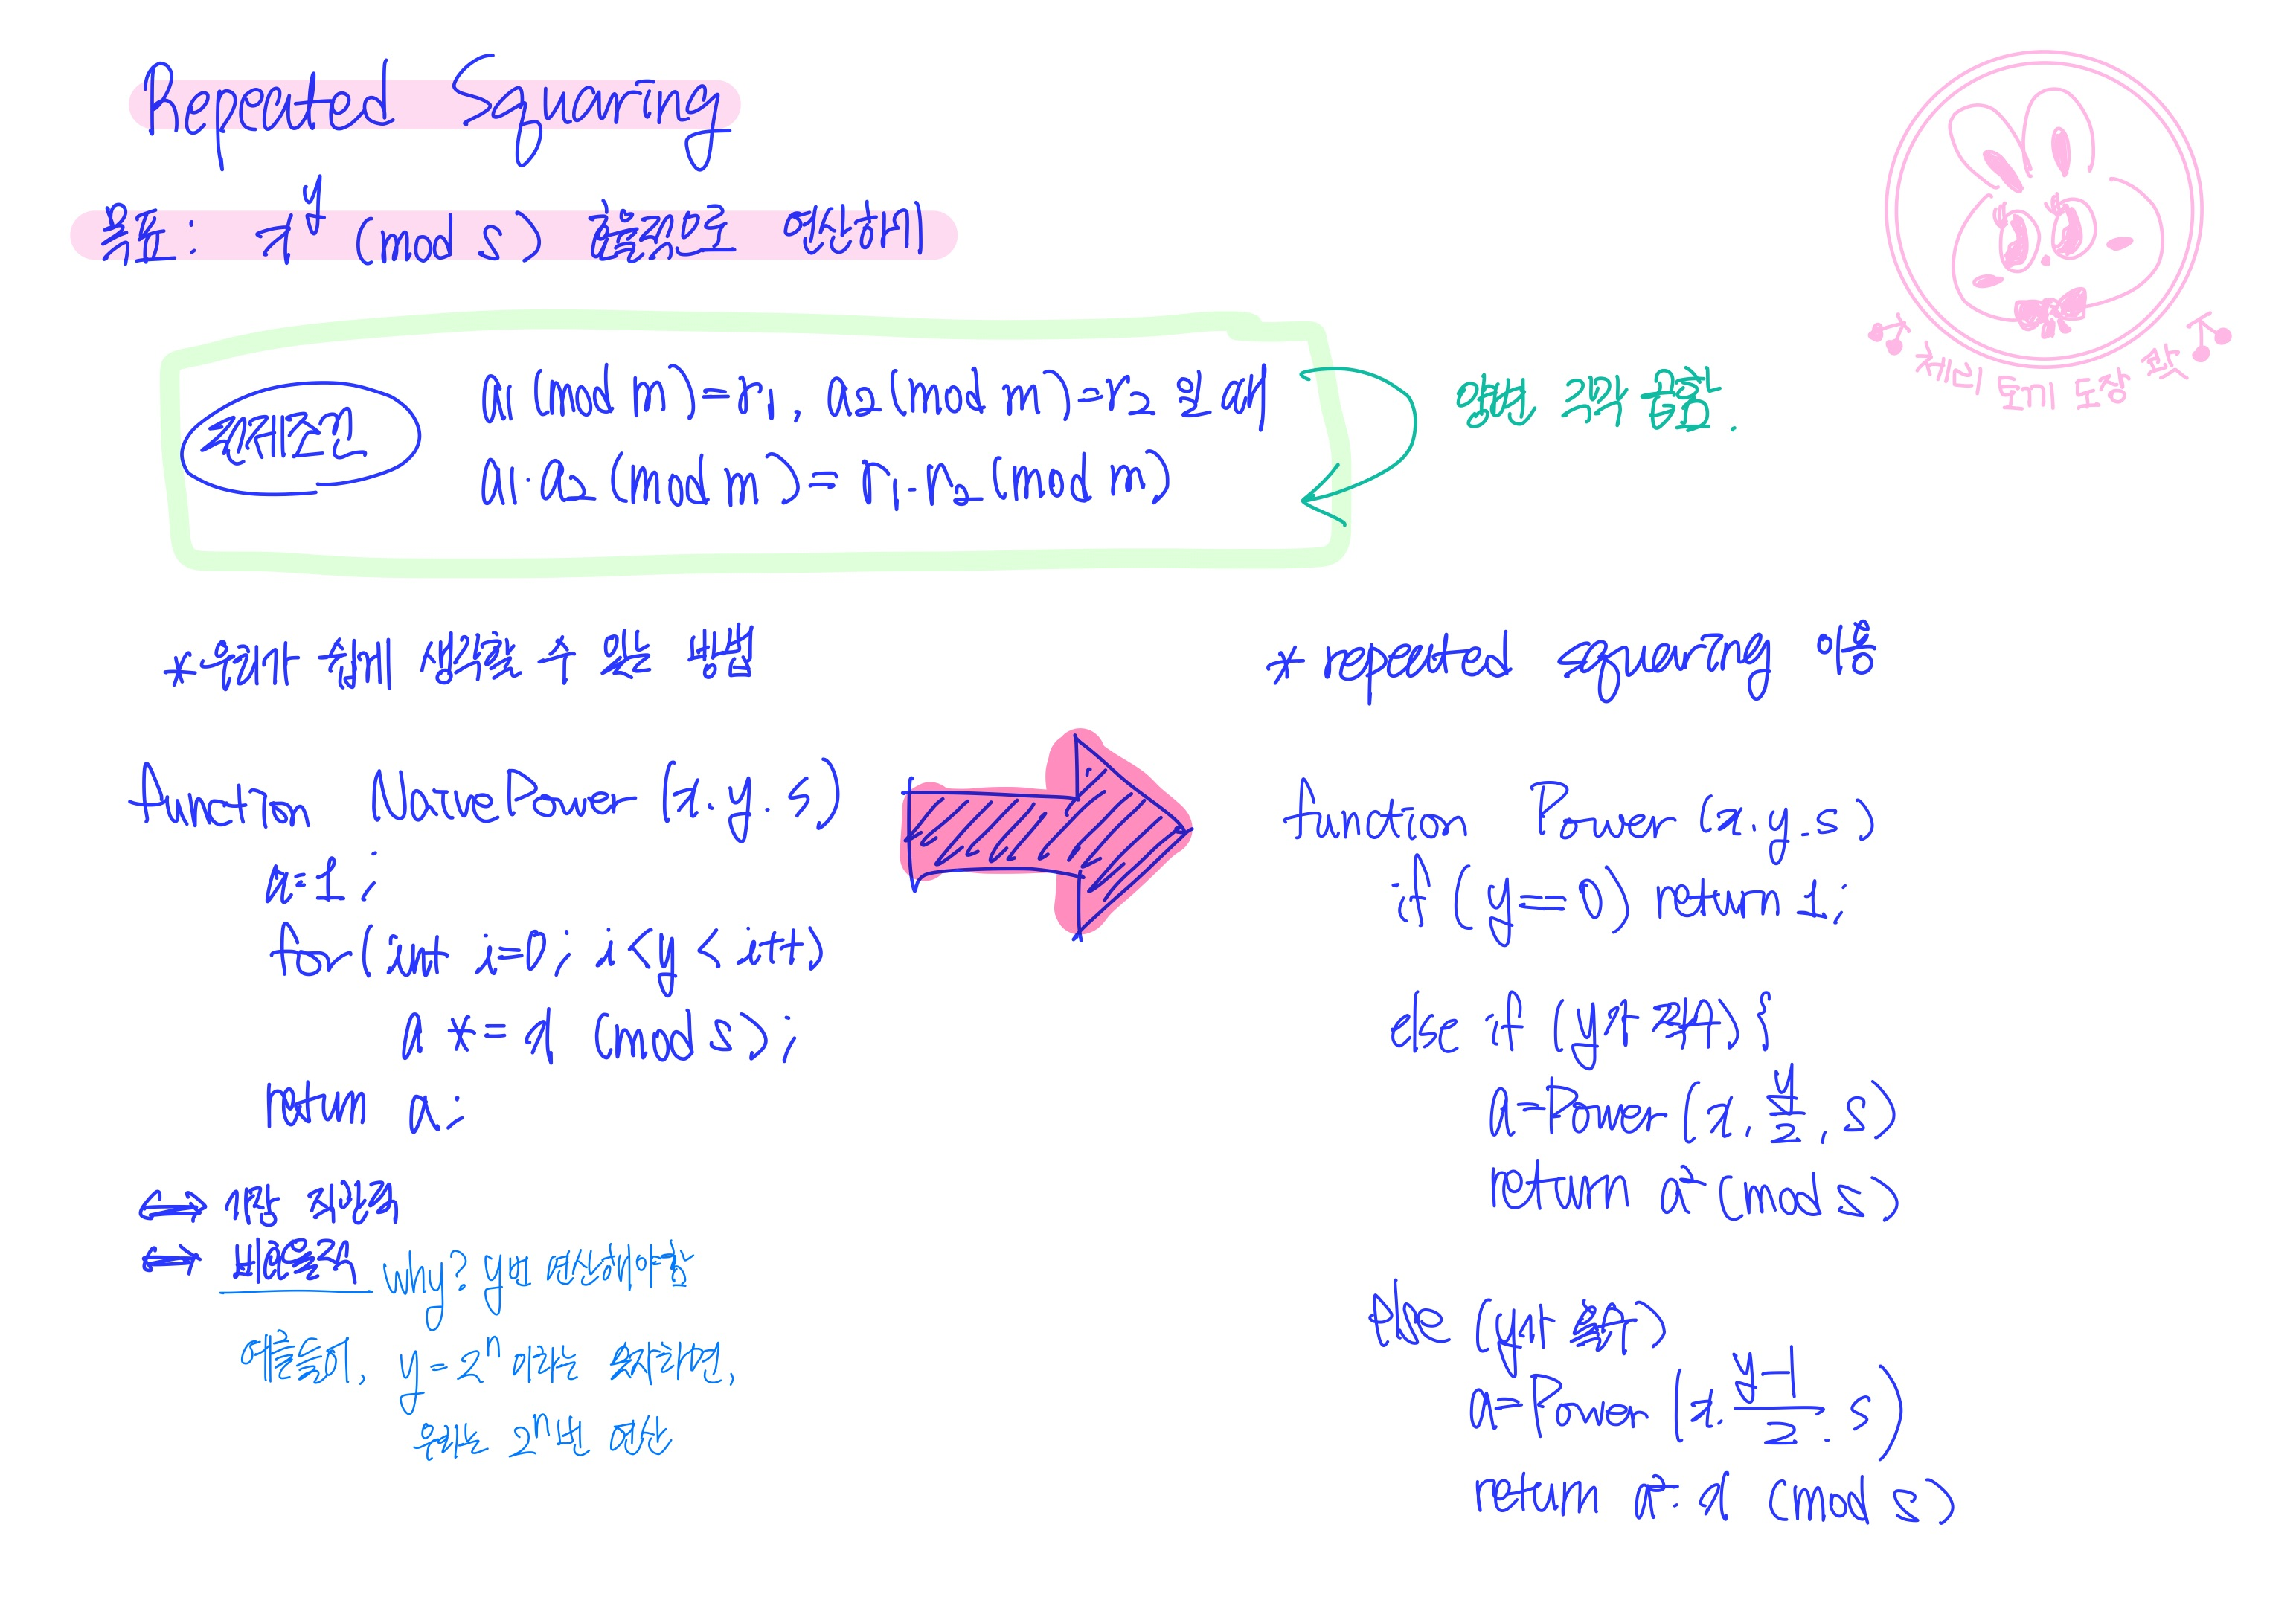 Repeated Squaring
목표: x^y (mod s) 효율적으로 연산하기
체리 토끼 도장 꽝
전제조건
a1 (mod m)=r1, a2 (mod m)=r2 일 때
a1·a2 (mod m)= r1·r2 (mod m)
양변 각각 곱함.
*우리가 쉽게 생각할 수 있는 방법
function NaivePower (x.y.s)
a=1;
for(int i=0; i<y < i++)
a *= x (mod s);
return a;
⇔ 가장 직관적
⇔ 비효율적 why? y번 연산해야함
예를들어, y=2^n 이라는 숫자라면,
우리는 2^n번 연산
* repeated squaring 이용
function Power (x.y.s)
if (y==0) return 1;
else if (y가 짝수) {
a=Power (x, y/2, s)
return a² (mod s)
else (y가 홀수)
a=Power (x. y-1/2 . s)
return a²·x (mod s)